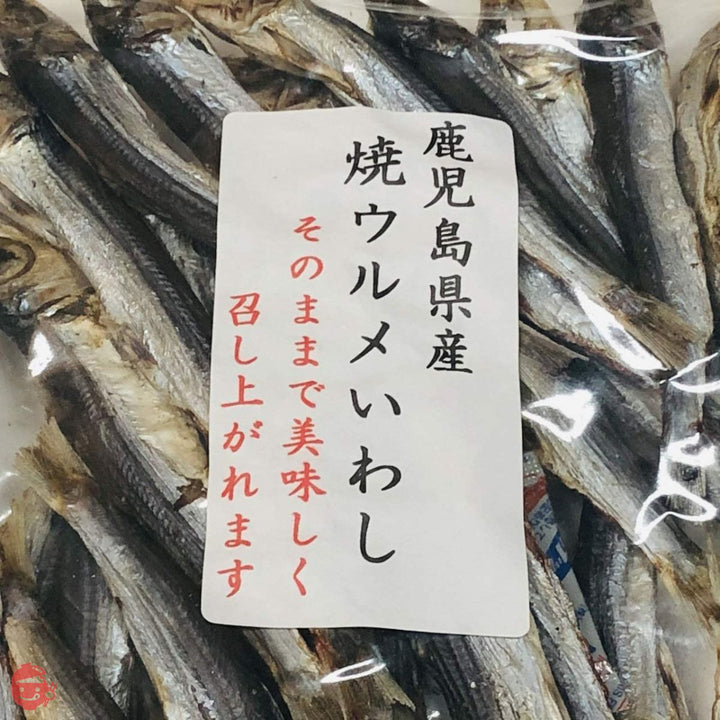 鹿児島県産
焼ウルメいわし
そのままで美味しく
召し上がれます